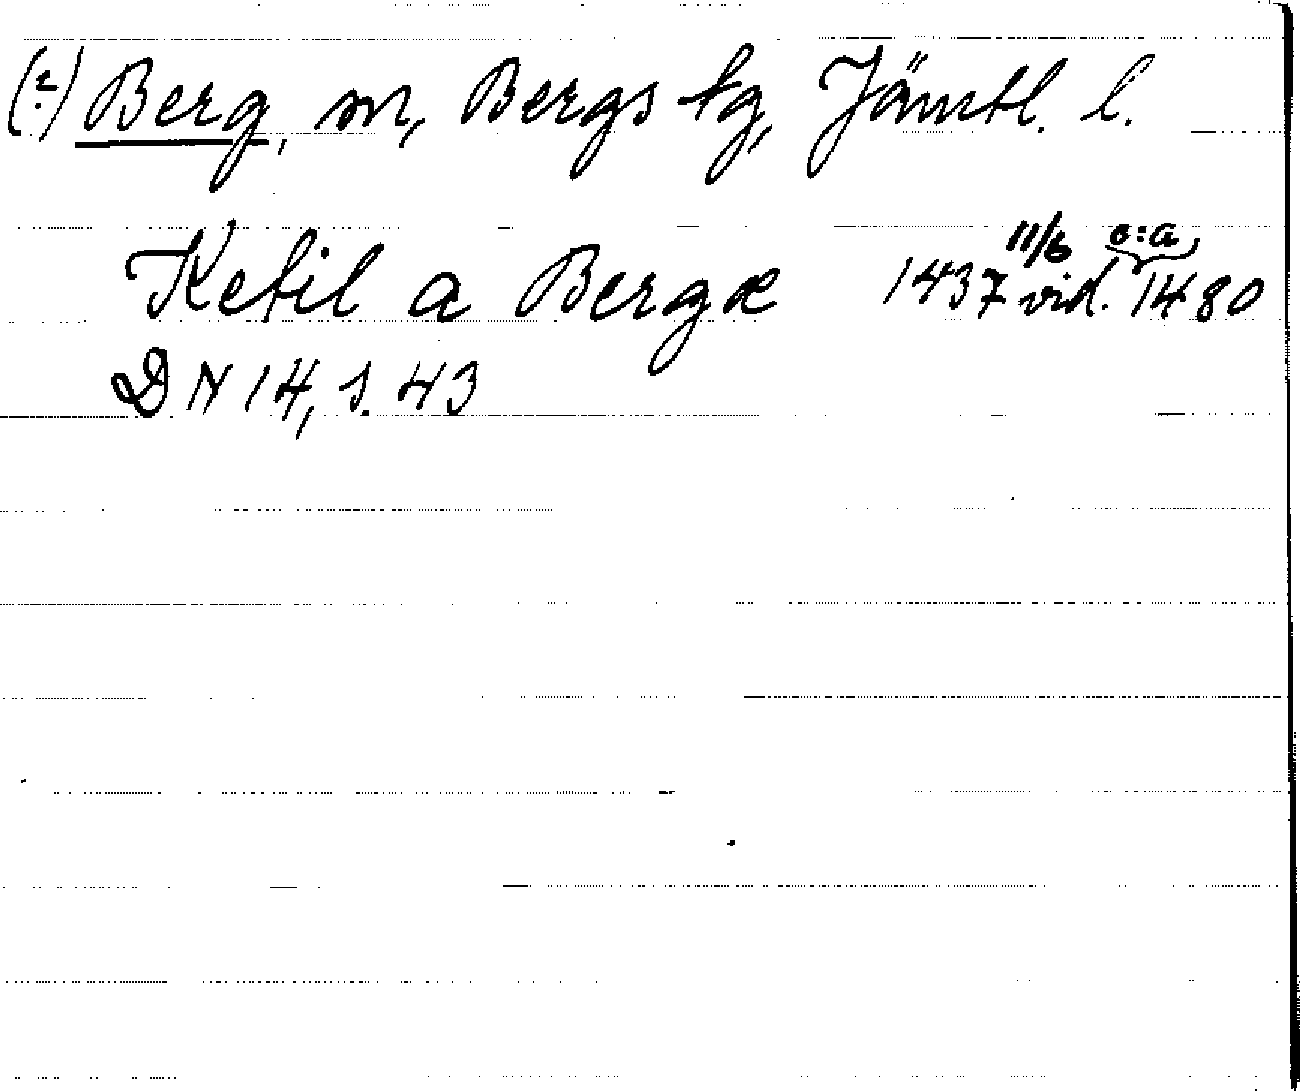 (?) Berg, sn, Bergs tg, Jämtl. l.
Ketil a Bergæ 1437 11/6 vid. c:a 1480
DN 14, s. 43